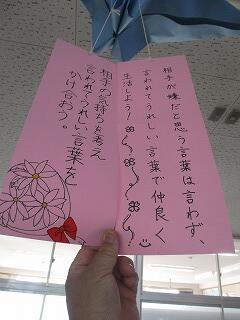 相手が嫌だと思う言葉は言わず、
言われてうれしい言葉で仲良く
生活しよう!
相手の気持ちを考え
言われてうれしい言葉を
かけ合おう。